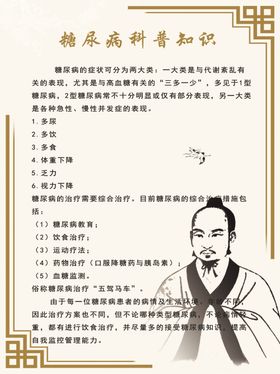 糖尿病科普知识
糖尿病的症状可分为两大类：一大类是与代谢紊乱有
关的表现，尤其是与高血糖有关的“三多一少”，多见于1型
糖尿病，2型糖尿病常不十分明显或仅有部分表现，另一大类
是各种急性、慢性并发症的表现。
1. 多尿
2. 多饮
3. 多食
4. 体重下降
5. 乏力
6. 视力下降
糖尿病的治疗需要综合治疗。目前糖尿病的综合治疗措施包
括：
（1）糖尿病教育；
（2）饮食治疗；
（3）运动疗法；
（4）药物治疗（口服降糖药与胰岛素）；
（5）血糖监测。
俗称糖尿病治疗“五驾马车”。
由于每一位糖尿病患者的病情及生活环境、 不同，
因此治疗方案也不同，但不论哪种类型糖尿病，不论病情轻
重，都有进行饮食治疗，并尽量多的接受糖尿病知识，提高
自我监控管理能力。